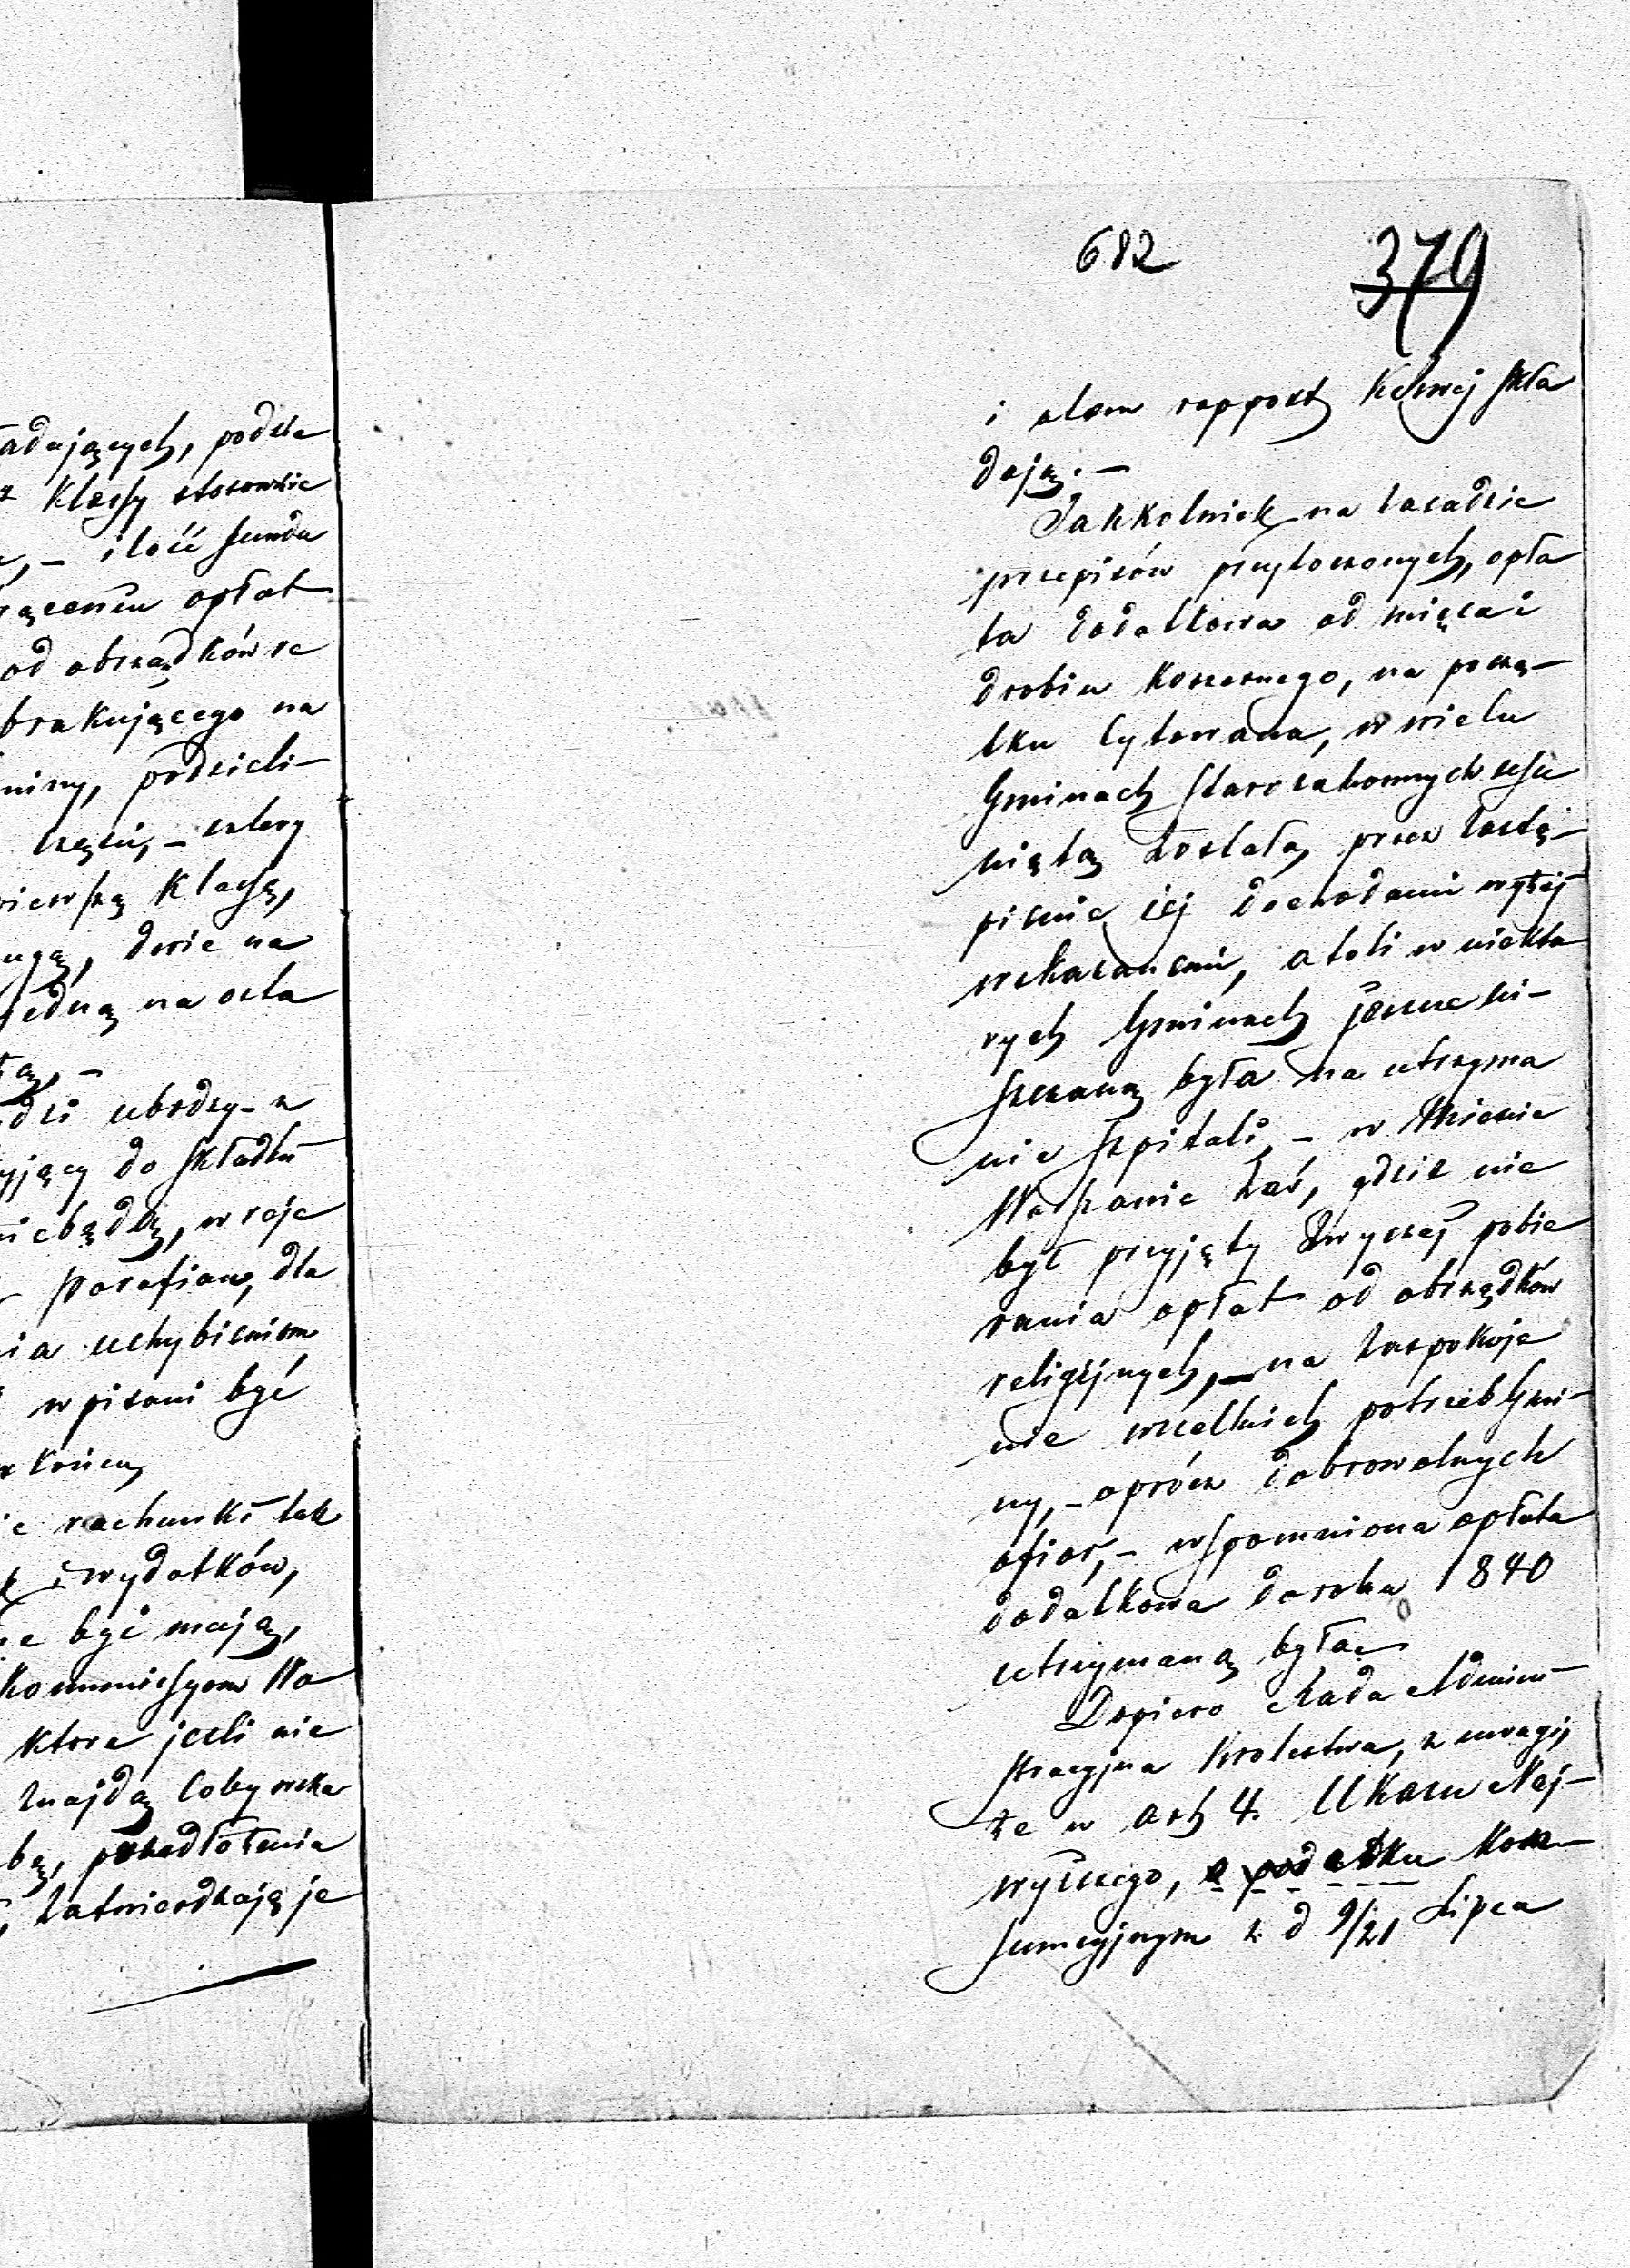 adających, podzie
z Klassy stosownie
ilość fundu
rąceniu opłat
od obrządków re
brakującego na
miny, podzieli-
części, - cztery
pierwszą Klassę,
ugą, dwie na
jedną na osta
tą, -
dzi ubodzy - z
yjący do składki
nie będą, w reje
Parafian, dla
nia uchybieniom
wpisani być
Końcu
ie rachunki tak
k i wydatków,
ne być mają,
Kommissyom Wo
które jeśli nie
znajdą coby wska
bę, przedłożenia
zatwierdzają je
682
379
i o tem rapport Kolnej skła
dają. -
Jakkolwiek na zasadzie
przepisów przytoczonych, opła
ta dodatkowa od mięsa i
drobiu Koszernego, na począ-
tku cytowana, w wielu
Gminach Starozakonnych usu
niętą została, przez zastę-
pienie jej dochodami wyżej
wskazanemi, atoli w niektó
rych Gminach jeszcze ui-
szczaną była na utrzyma
nie szpitali, - w Mieście
Warszawie zaś, gdzie nie
był przyjęty zwyczaj pobie
rania opłat od obrządków
religijnych, - na zaspokoje
nie wszelkich potrzeb Gmi-
ny, - oprócz dobrowolnych
ofiar, - wspomniona opłata
dodatkowa do roku 1840
utrzymaną była
Dopiero Rada Admini-
stracyjna Królestwa, z uwagi,
że w art 4. Ukazu Naj-
wyższego, o podatku Kon-
sumcyjnym z d 9/21 Lipca